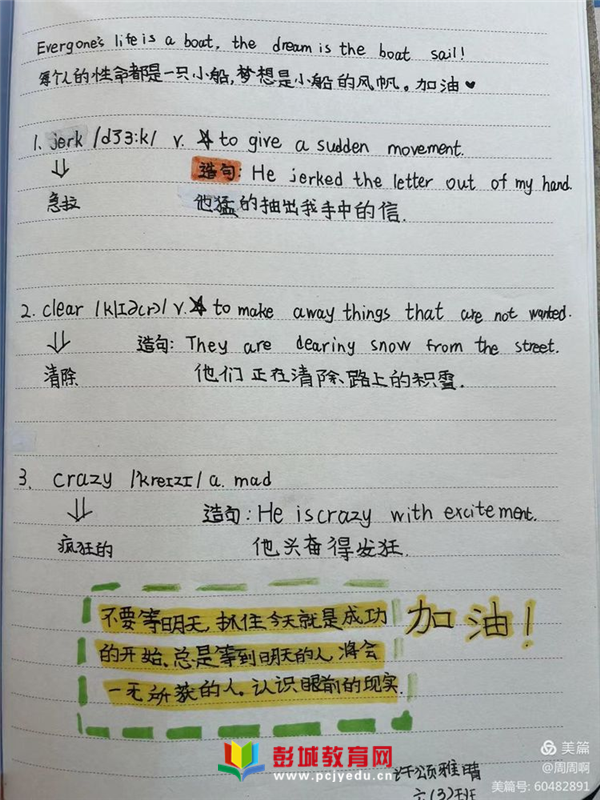 Evergone's life is a boat, the dream is the boat sail!
每个人的性命都是一只小船,梦想是小船的风帆。加油♥
1. jerk /dʒɜ:k/ v. ☆ to give a sudden movement.
造句: He jerked the letter out of my hand.
急拉 他猛的抽出我手中的信.
2. clear /klɪə(r)/ v. ☆ to make away things that are not wanted.
造句: They are dearing snow from the street.
清除 他们正在清除路上的积雪.
3. crazy /'kreɪzɪ/ a. mad
造句: He is crazy with excitement.
疯狂的 他兴奋得发狂.
不要等明天,抓住今天就是成功
的开始,总是等到明天的人,将会
一无所获的人。认识眼前的现实.
加油!
彭城教育网
www.pcjyedu.cn
许颂雅晴
六(3)班
美篇
@周周啊
美篇号: 60482891